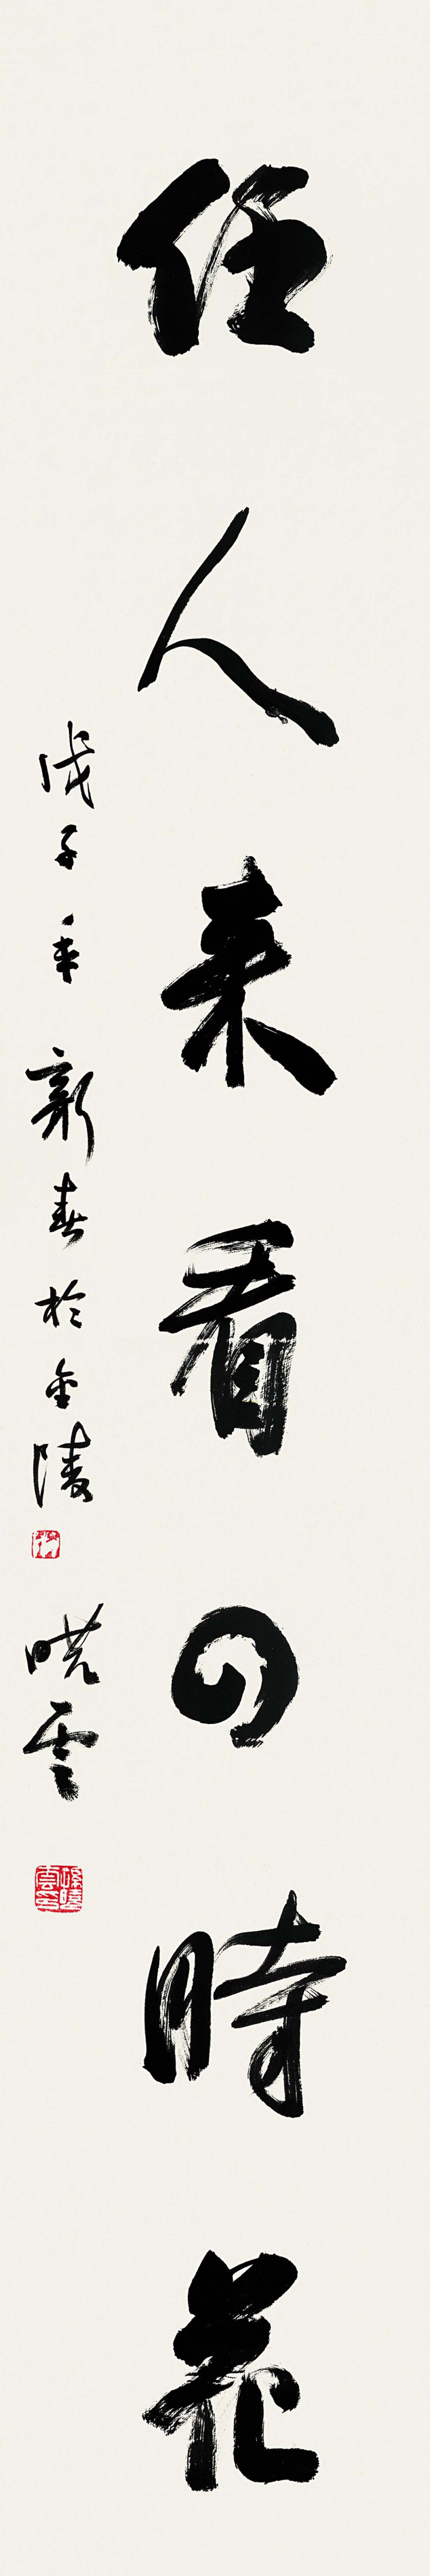 任人来看四時花
戊子年新春於金陵
晓雲
孫曉雲印